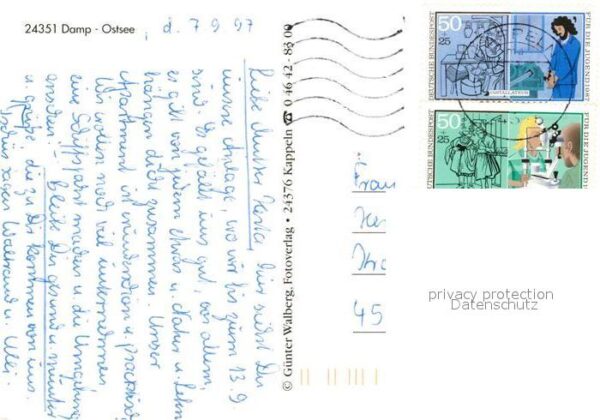 24351 Damp · Ostsee, d. 7.9.97
Liebe Mutter Herta hier siehst Du
unsere Anlage, wo wir bis zum 13.9.
sind. Es gefällt uns gut, vor allem,
es gibt von jedem etwas u. Natur u. Leben
hängen dicht zusammen. Unser
Apartment ist wunderschön u. praktisch
Wir wollen noch viel unternehmen
eine Schiffsfahrt machen u. die Umgebung
ansehen. Bleibe Du gesund u. munter
u. grüße die zu Dir kommen von uns.
Tschüs sagen Waltraud u. Uli.
© Günter Walberg, Fotoverlag · 24376 Kappeln ☎ 0 46 42 - 83 00
Frau
45
50
+25
DEUTSCHE BUNDESPOST
FÜR DIE JUGEND 19
INSTALLATEUR
50
+25
DEUTSCHE BUNDESPOST
FÜR DIE JUGEND 19
privacy protection
Datenschutz